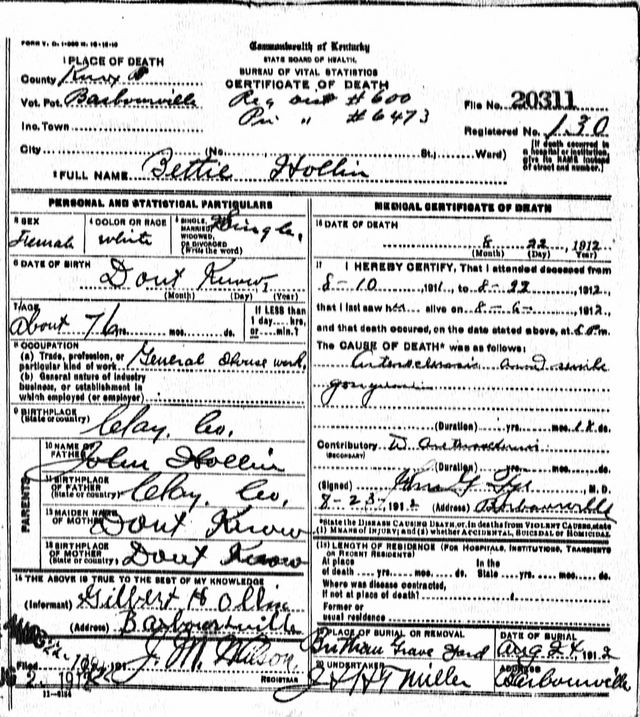 FORM V. S. 1
Commonwealth of Kentucky
STATE BOARD OF HEALTH.
BUREAU OF VITAL STATISTICS
CERTIFICATE OF DEATH
1 PLACE OF DEATH
County Knox
Vot. Pct. Barbourville
Inc. Town
City (No. St.; Ward)
Reg Dist #600
Pri " #6473
File No. 20311
Registered No. 130
[If death occurred in a hospital or institution, give its NAME instead of street and number.]
2 FULL NAME Bettie Hollin
PERSONAL AND STATISTICAL PARTICULARS
3 SEX
Female
4 COLOR OR RACE
white
5 SINGLE, MARRIED, WIDOWED, OR DIVORCED (Write the word)
Single,
6 DATE OF BIRTH
Dont Know,
(Month) (Day) (Year)
7 AGE
About 76 yrs. mos. ds.
If LESS than 1 day....hrs. or.....min.?
8 OCCUPATION
(a) Trade, profession, or particular kind of work General House work,
(b) General nature of industry business, or establishment in which employed (or employer)
9 BIRTHPLACE
(State or country) Clay, Co,
PARENTS
10 NAME OF FATHER John Hollin
11 BIRTHPLACE OF FATHER (State or country) Clay, Co,
12 MAIDEN NAME OF MOTHER Dont Know
13 BIRTHPLACE OF MOTHER (State or country) Dont Know
14 THE ABOVE IS TRUE TO THE BEST OF MY KNOWLEDGE
(Informant) Gilbert Hollin
(Address) Barbourville
Filed 191
J. M. Wilson,
REGISTRAR
MEDICAL CERTIFICATE OF DEATH
16 DATE OF DEATH
8 22 1912
(Month) (Day) (Year)
17 I HEREBY CERTIFY, That I attended deceased from
8-10 191, to 8-22 1912,
that I last saw her alive on 8-6- 1912,
and that death occured, on the date stated above, at m.
The CAUSE OF DEATH* was as follows:
and senile
(Duration) yrs. mos. ds.
Contributory
(SECONDARY)
(Duration) yrs. mos. ds.
(Signed) M. D.
8-23- 1912 (Address) Barbourville
*State the DISEASE CAUSING DEATH, or, in deaths from VIOLENT CAUSES, state (1) MEANS OF INJURY; and (2) whether ACCIDENTAL, SUICIDAL or HOMICIDAL.
LENGTH OF RESIDENCE (FOR HOSPITALS, INSTITUTIONS, TRANSIENTS OR RECENT RESIDENTS)
At place of death yrs. mos. ds. In the State yrs. mos. ds.
Where was disease contracted, if not at place of death?
Former or usual residence
PLACE OF BURIAL OR REMOVAL
Grave Yard
DATE OF BURIAL
Aug 24 1912
20 UNDERTAKER
Miller
ADDRESS
Barbourville
11-6184